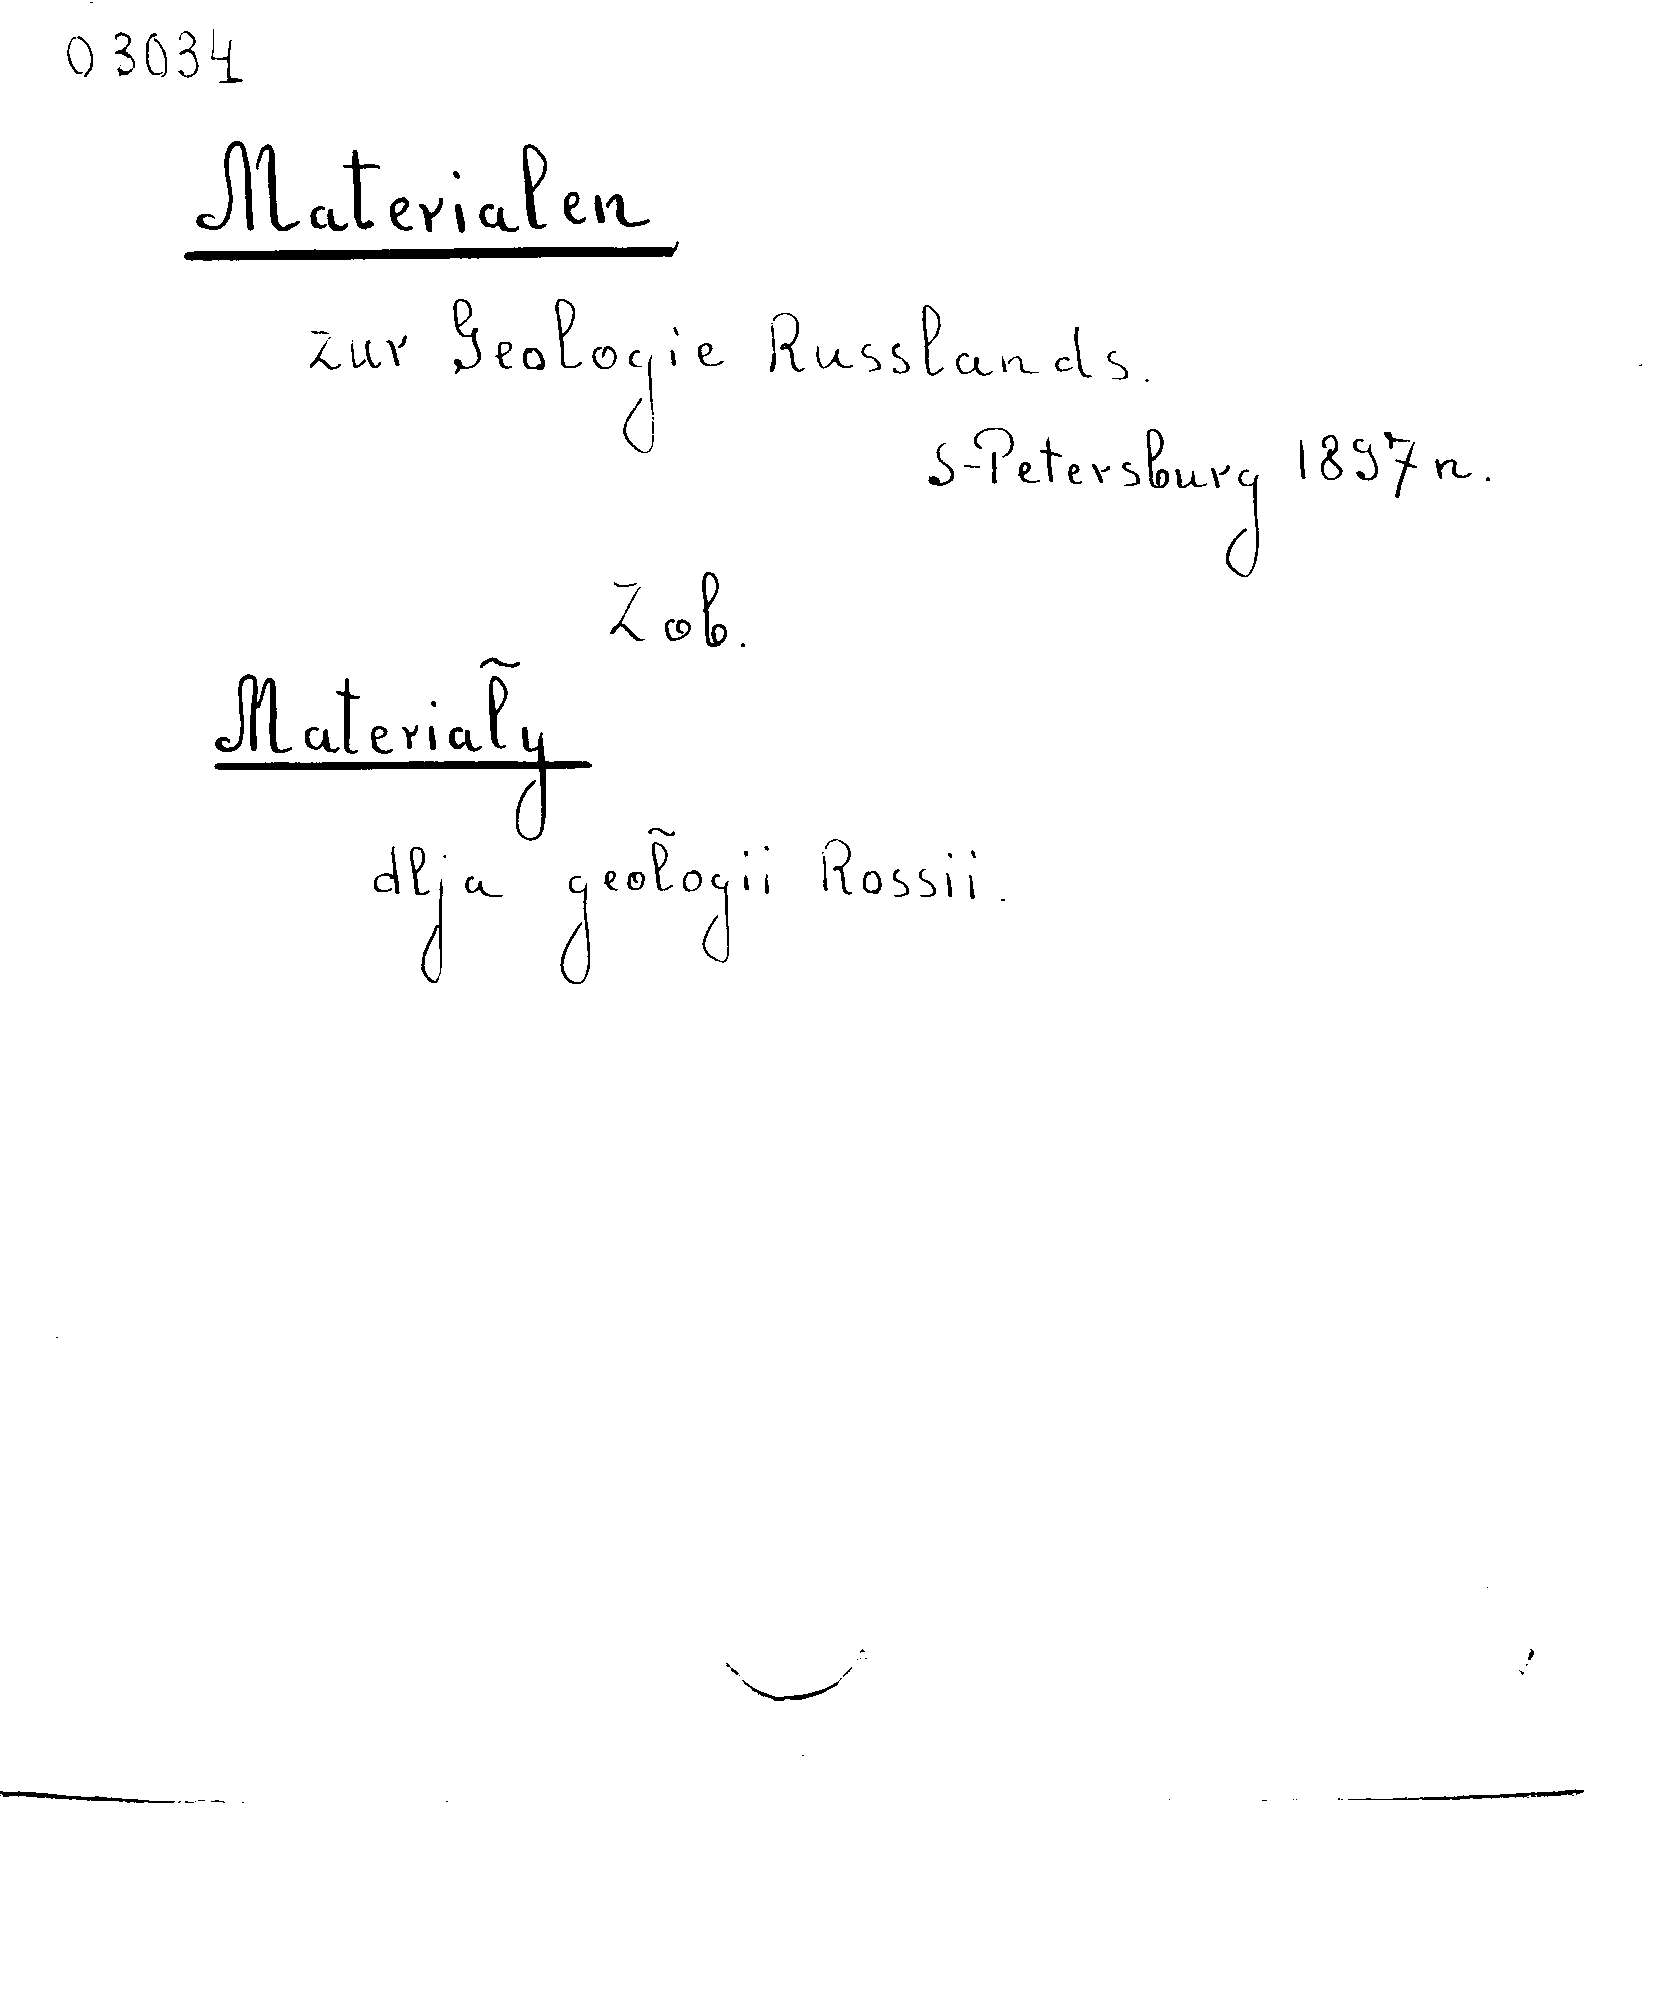 03034
Materialen
zur Geologie Russlands.
S-Petersburg 1897 r.
Zob.
Materiały
dlja geołogii Rossii.